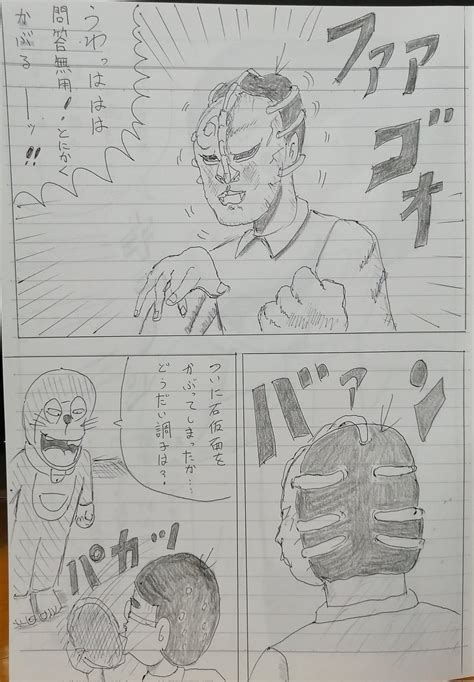 ファァ
ゴォ
うわっははは
問答無用！とにかく
かぶるーッ!!
バァン
ついに石仮面を
かぶってしまったか…
どうだい調子は？
パカッ